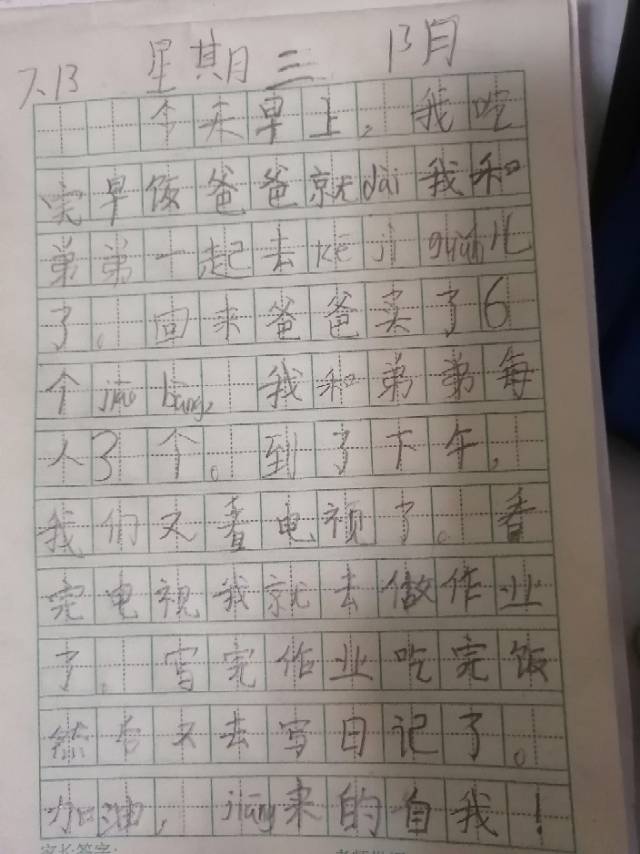 7.13 星期三 阴
今天早上，我吃
完早饭爸爸就dài我和
弟弟一起去kē jì guǎn儿
了。回来爸爸买了6
个jiāo bāng，我和弟弟每
人3个。到了下午，
我们又看电视了。看
完电视我就去做作业
了，写完作业吃完饭
然后又去写日记了。
加油，jiāng来的自我！
家长签字：